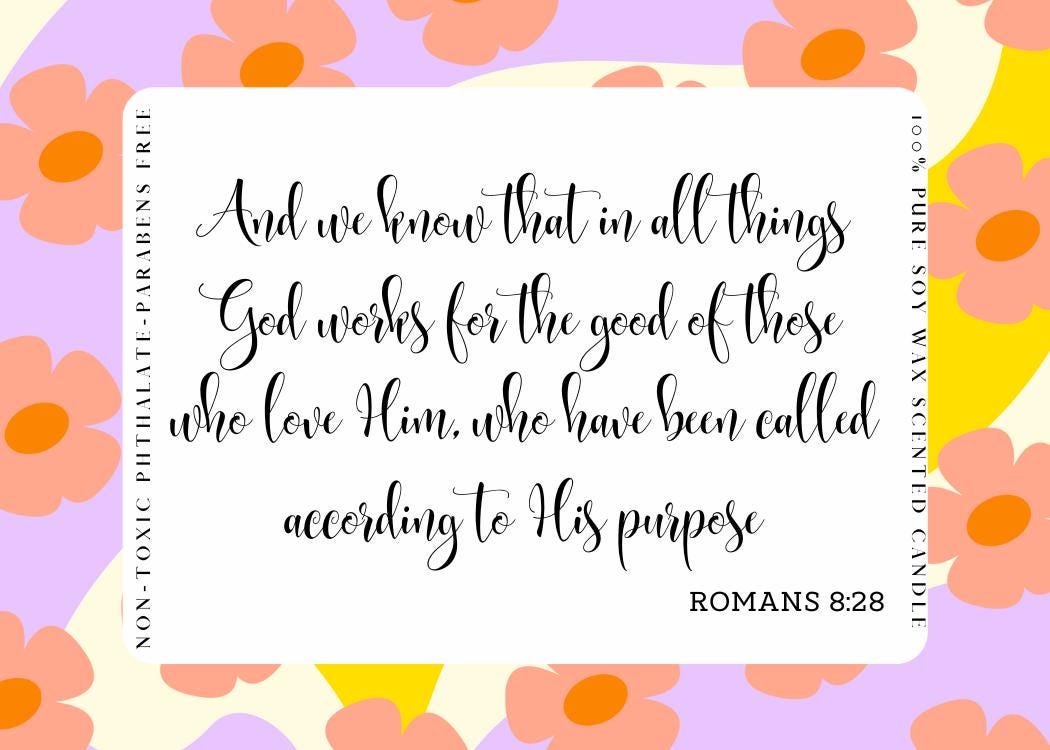 NON-TOXIC PHTHALATE-PARABENS FREE
And we know that in all things
God works for the good of those
who love Him, who have been called
according to His purpose
ROMANS 8:28
100% PURE SOY WAX SCENTED CANDLE